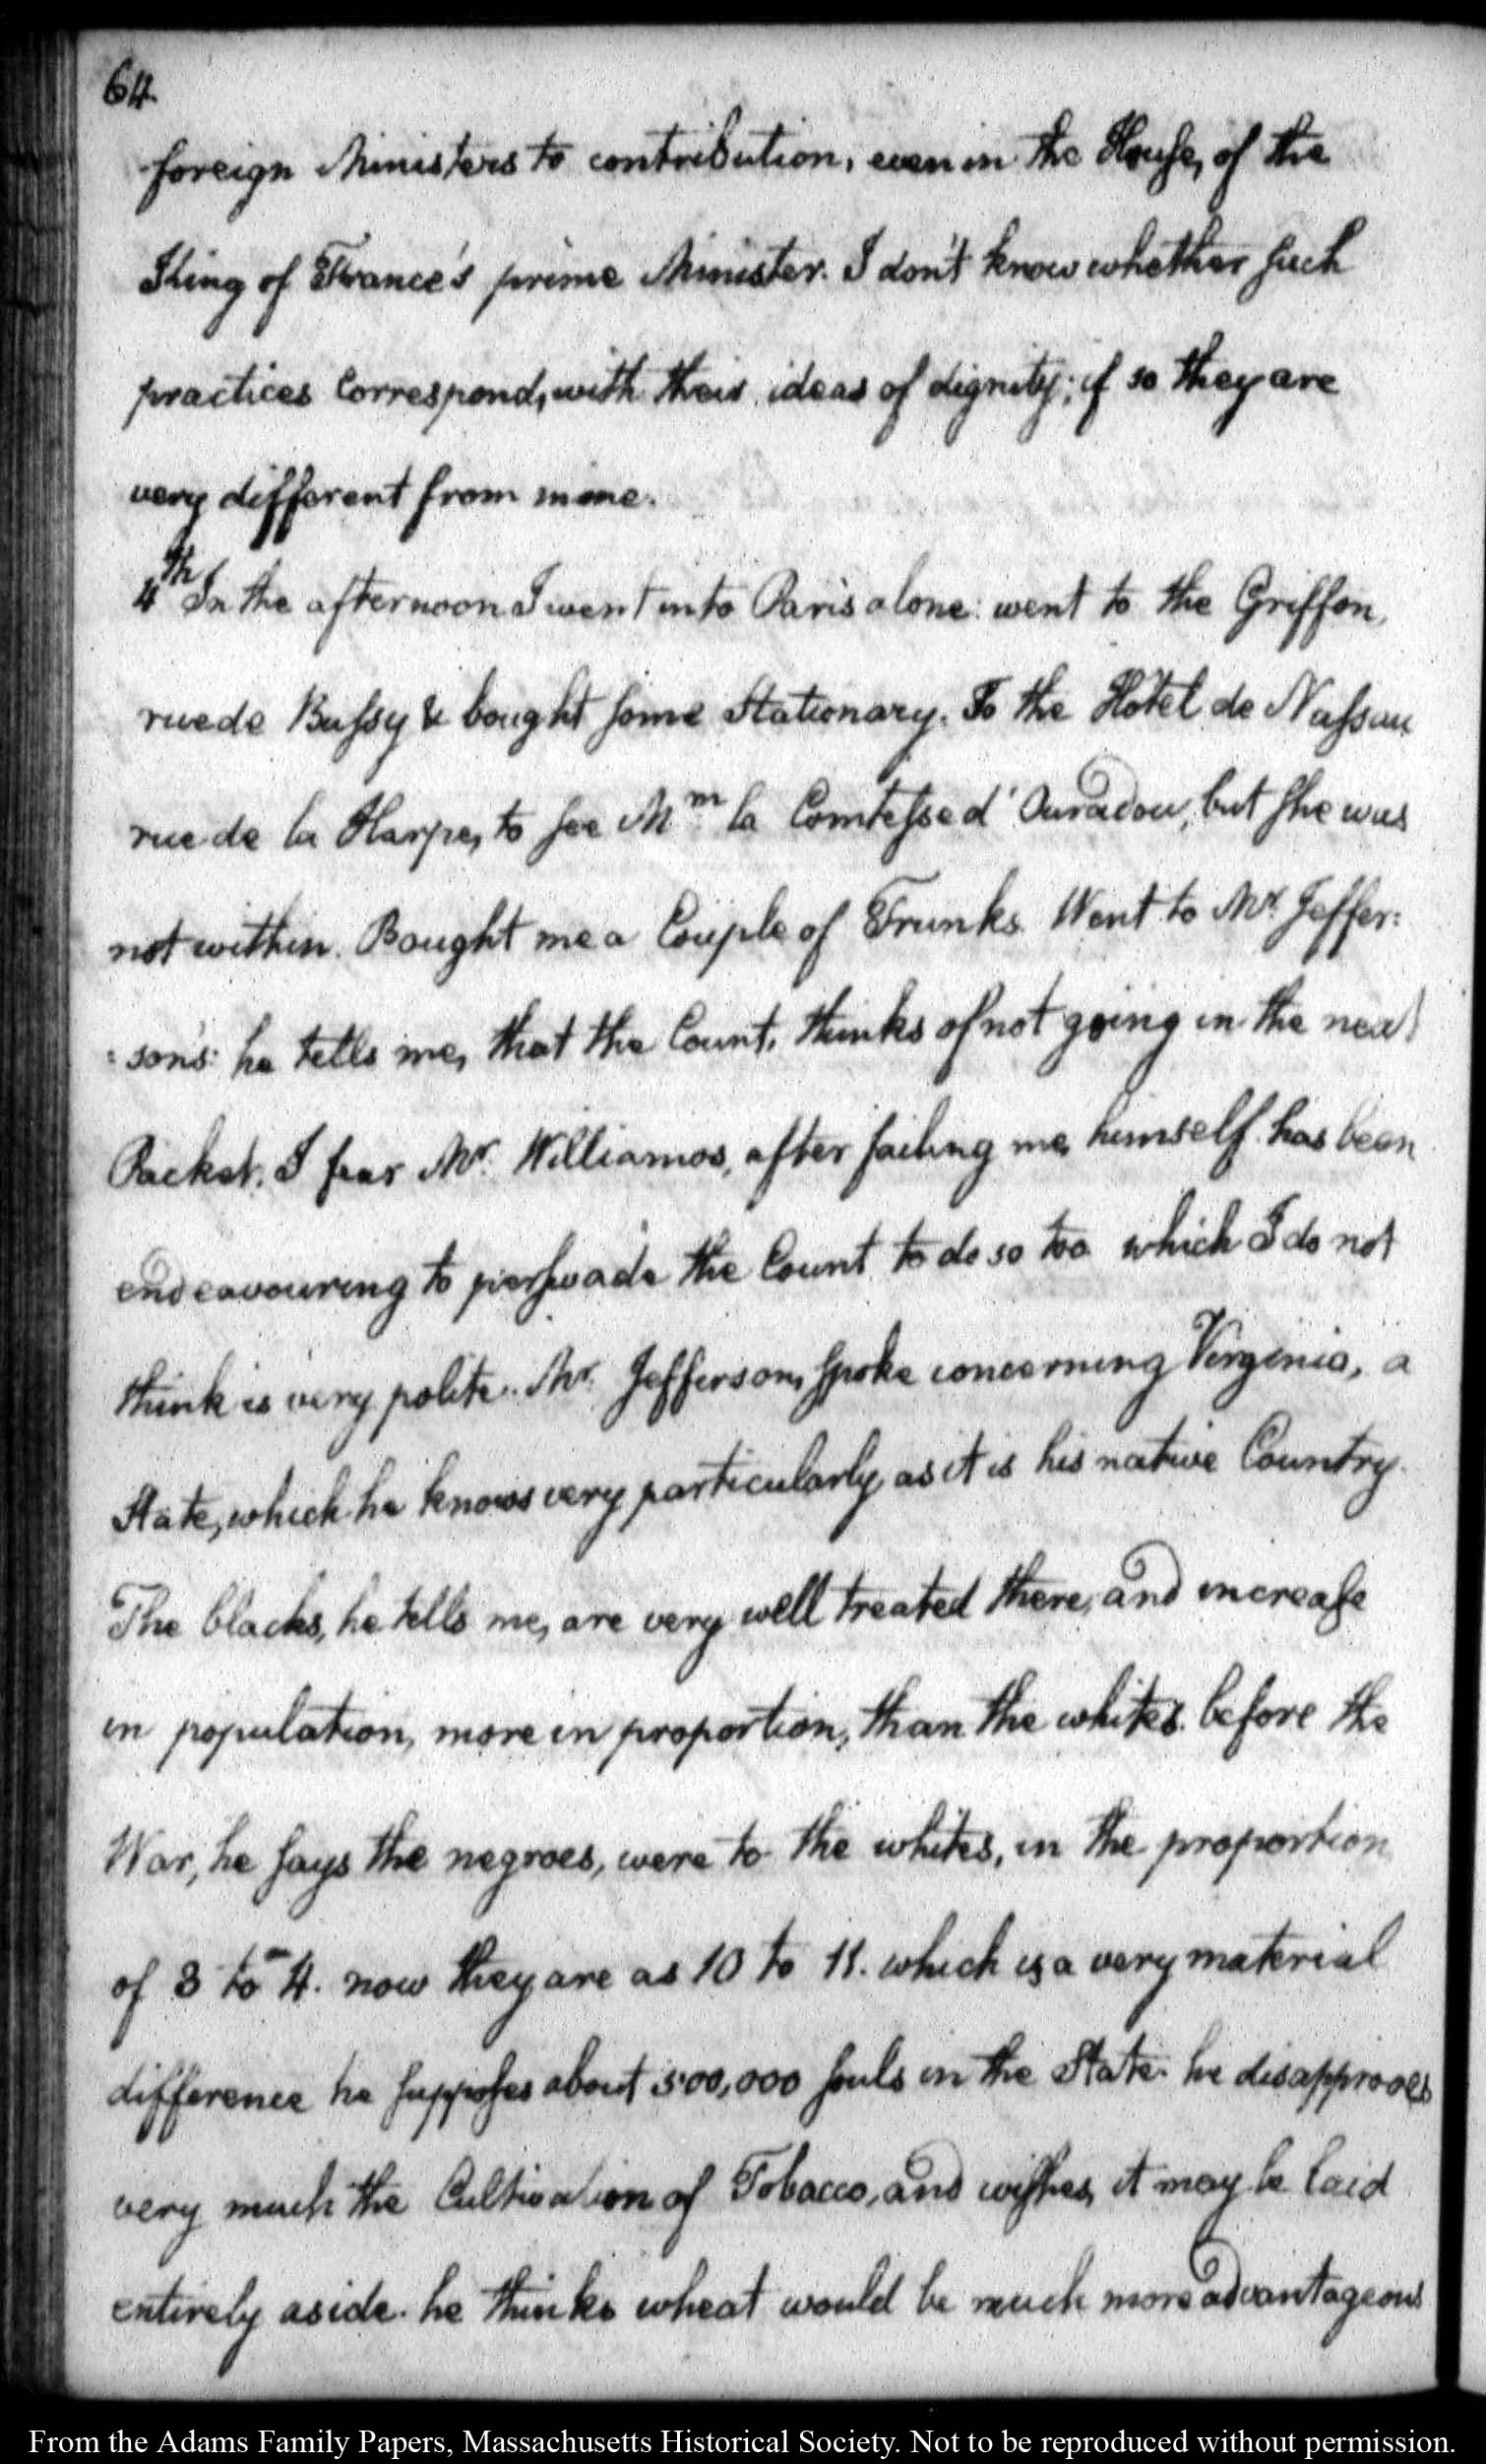 64.
foreign Ministers to contribution, even in the House, of the
King of France's prime Minister. I don't know whether such
practices Correspond, with their ideas of dignity; if so they are
very different from mine.
4th In the afternoon I went into Paris alone: went to the Griffon,
rue de Bussy & bought some Stationary. To the Hôtel de Nassau
rue de la Harpe, to see Mm la Comtesse d'Ouradou, but she was
not within. Bought me a Couple of Trunks. Went to Mr. Jeffer:
:son's: he tells me, that the Count, thinks of not going in the next
Packet. I fear Mr. Williamos, after failing me, himself has been
endeavouring to perswade the Count to do so too which I do not
think is very polite. Mr. Jefferson, spoke concerning Virginia, a
State, which he knows very particularly, as it is his native Country.
The blacks, he tells me, are very well treated there, and increase
in population, more in proportion, than the whites. before the
War, he says the negroes, were to the whites, in the proportion
of 3 to 4. now they are as 10 to 11. which is a very material
difference he supposes about 500,000 souls in the State. he disapproves
very much the Cultivation of Tobacco, and wishes, it may be laid
entirely aside. he thinks wheat would be much more advantageous
From the Adams Family Papers, Massachusetts Historical Society. Not to be reproduced without permission.